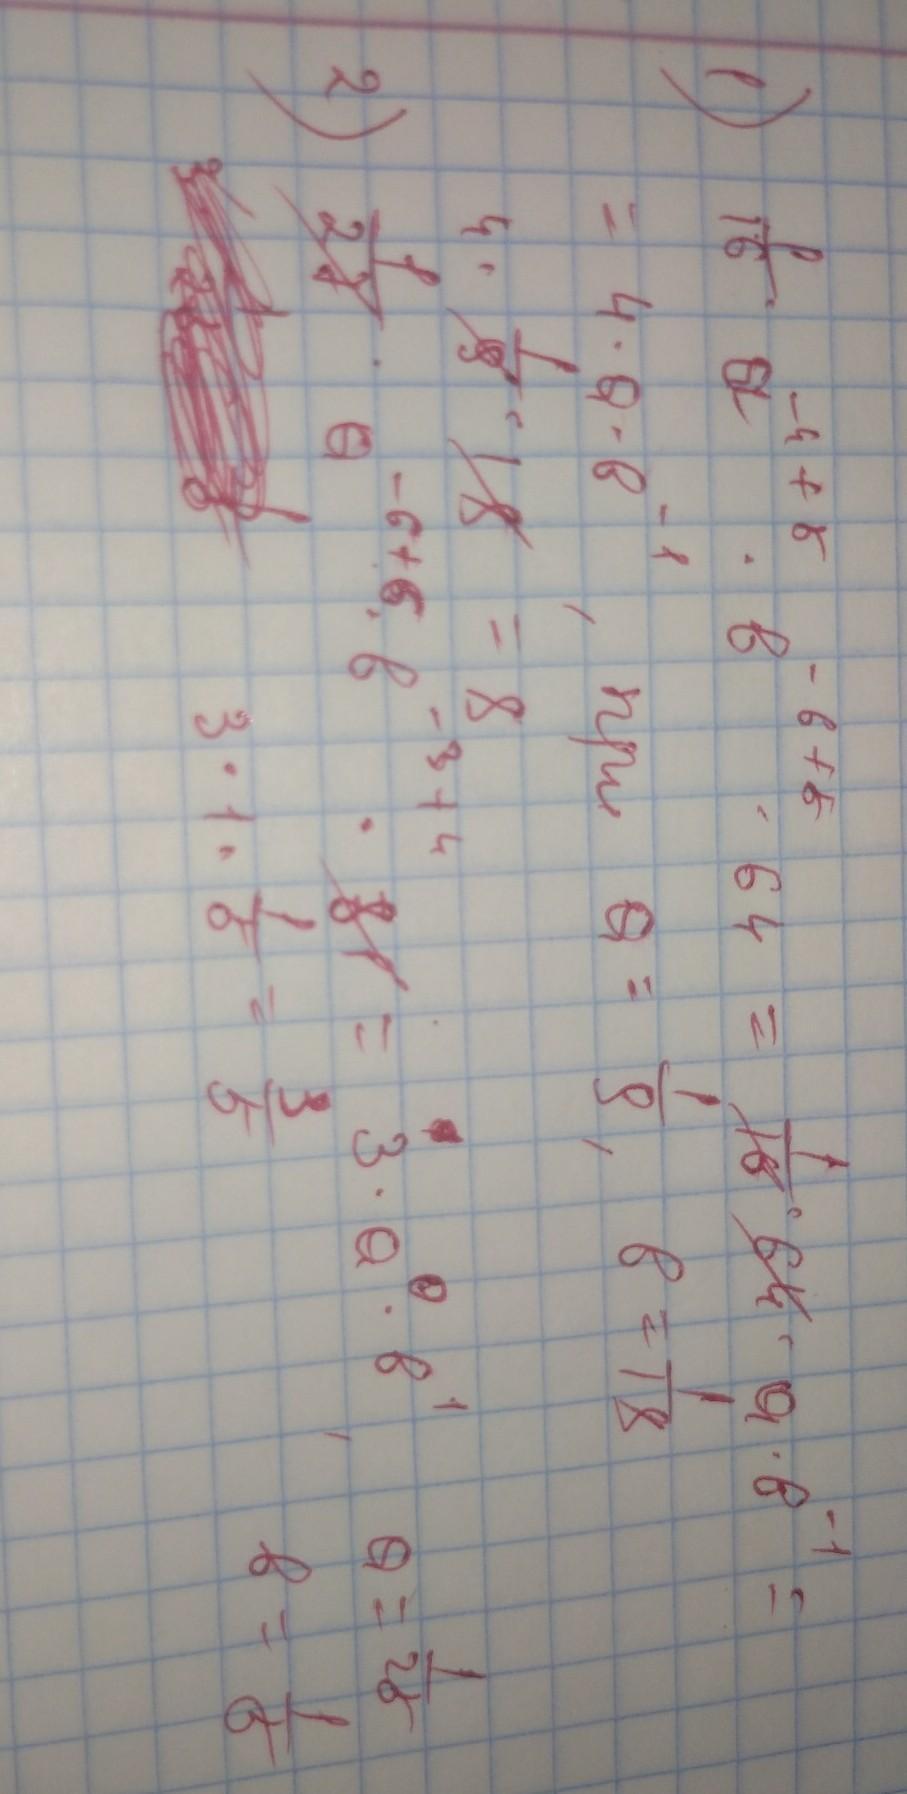 1) 1/16 · a^(-4+5) · b^(-6+5) · 64 = 1/16 · 64 · a · b^(-1) =
= 4 · a · b^(-1), при a = 1/9, b = 1/18
4 · 1/9 · 18 = 8
2) 1/27 · a^(-6+6) · b^(-3+4) · 81 = 3 · a^0 · b^1, a = 1/25
b = 1/5
3 · 1 · 1/5 = 3/5